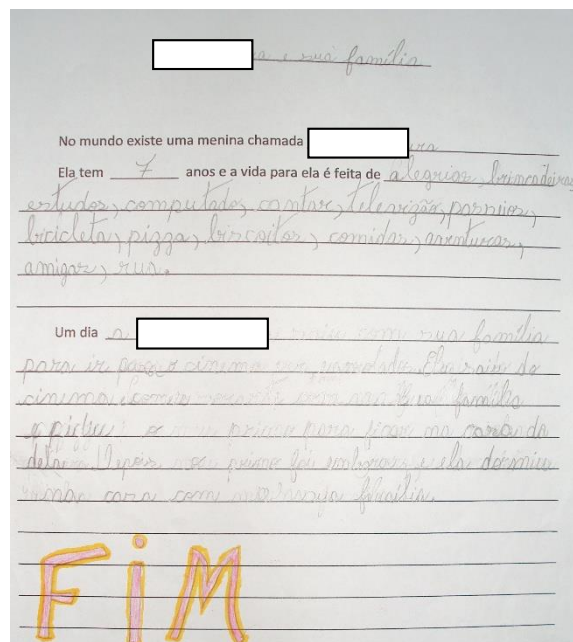 e sua família
No mundo existe uma menina chamada
Ela tem 7 anos e a vida para ela é feita de alegrias, brincadeiras,
estudos, computador, cantar, televizão, passeios,
bicicleta, pizza, biscoitos, comidas, aventuras,
amigos, rua.
Um dia a saiu com sua família
para ir para o cinema Ela saiu do
cinema família
e pediu o primo para ficar na casa da
dela. Depois o primo foi embora e ela dormiu
na casa com família.
FiM